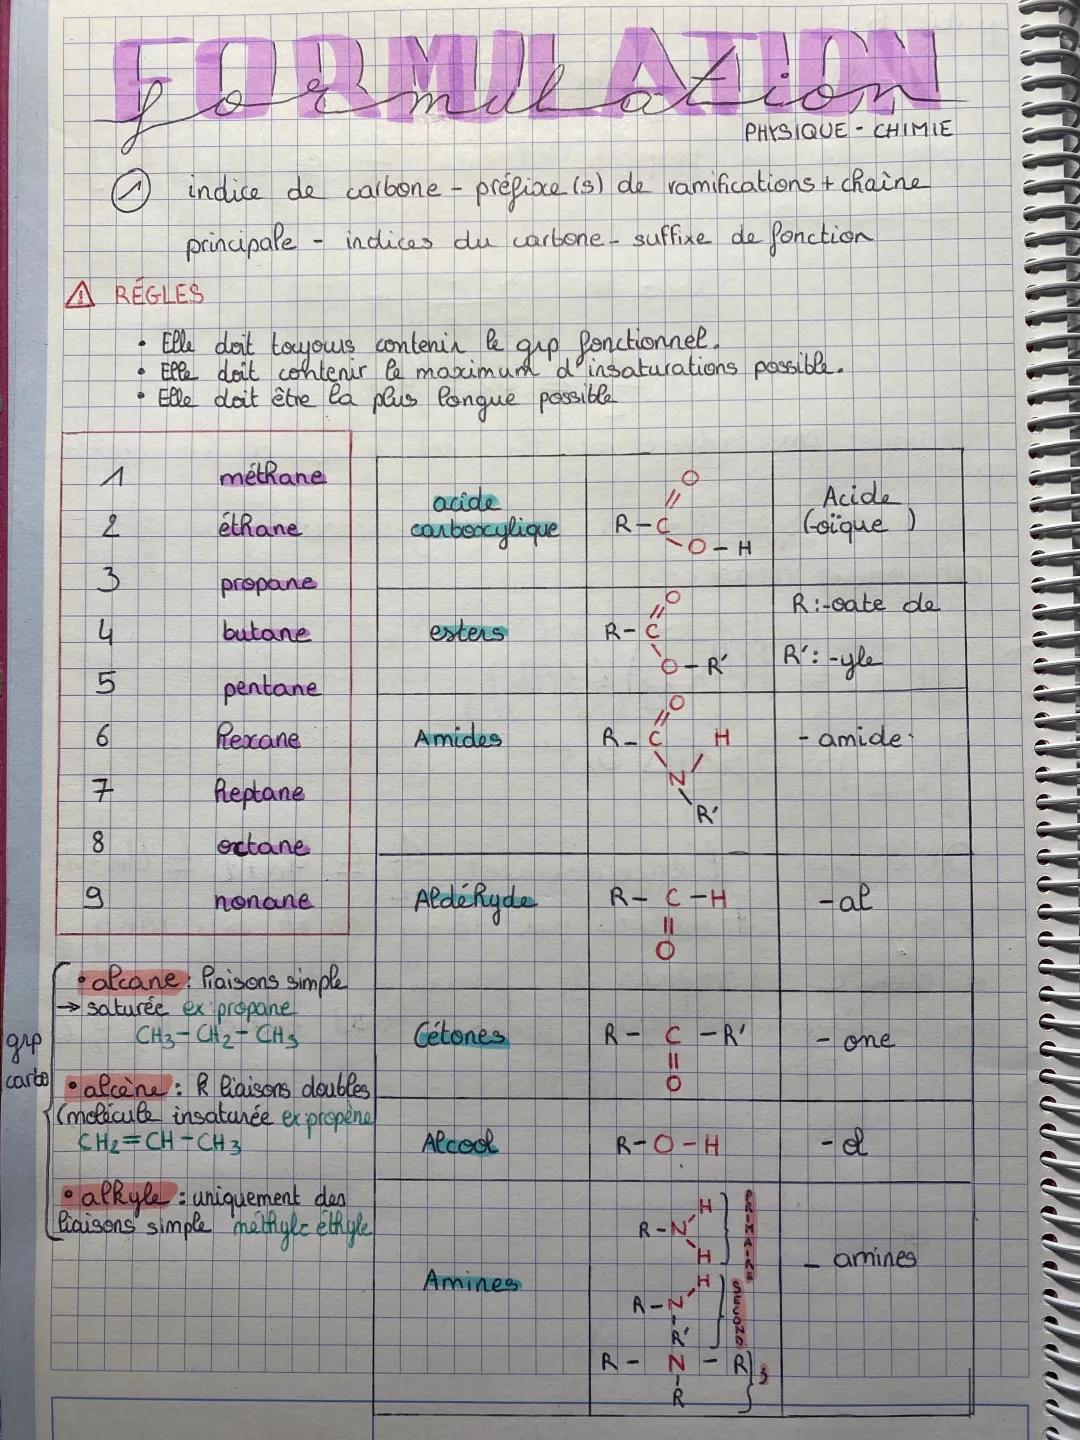 FORMULATION
formulation
PHYSIQUE - CHIMIE
1 indice de carbone - préfixe(s) de ramifications + chaîne
principale - indices du carbone - suffixe de fonction
⚠ RÉGLES
• Elle doit toujours contenir le grp fonctionnel.
• Elle doit contenir le maximum d'insaturations possible.
• Elle doit être la plus longue possible
1 méthane
2 éthane
3 propane
4 butane
5 pentane
6 hexane
7 heptane
8 octane
9 nonane
grp
carbo
• alcane : liaisons simple
→ saturée ex : propane
CH3-CH2-CH3
• alcène : k liaisons doubles
(molécule insaturée ex propène
CH2=CH-CH3
• alkyle : uniquement des
liaisons simple méthyle éthyle
acide
carboxylique
O
R-C
O-H
Acide
(-oïque )
esters
O
R-C
O-R'
R:-oate de
R':-yle
Amides
O
R-C H
N
R'
-amide
Aldéhyde
R-C-H
O
-al
Cétones
R-C-R'
O
-one
Alcool
R-O-H
-ol
Amines
H
R-N
H
PRIMAIRE
H
R-N
R'
SECOND
R-N-R
R
3
- amines